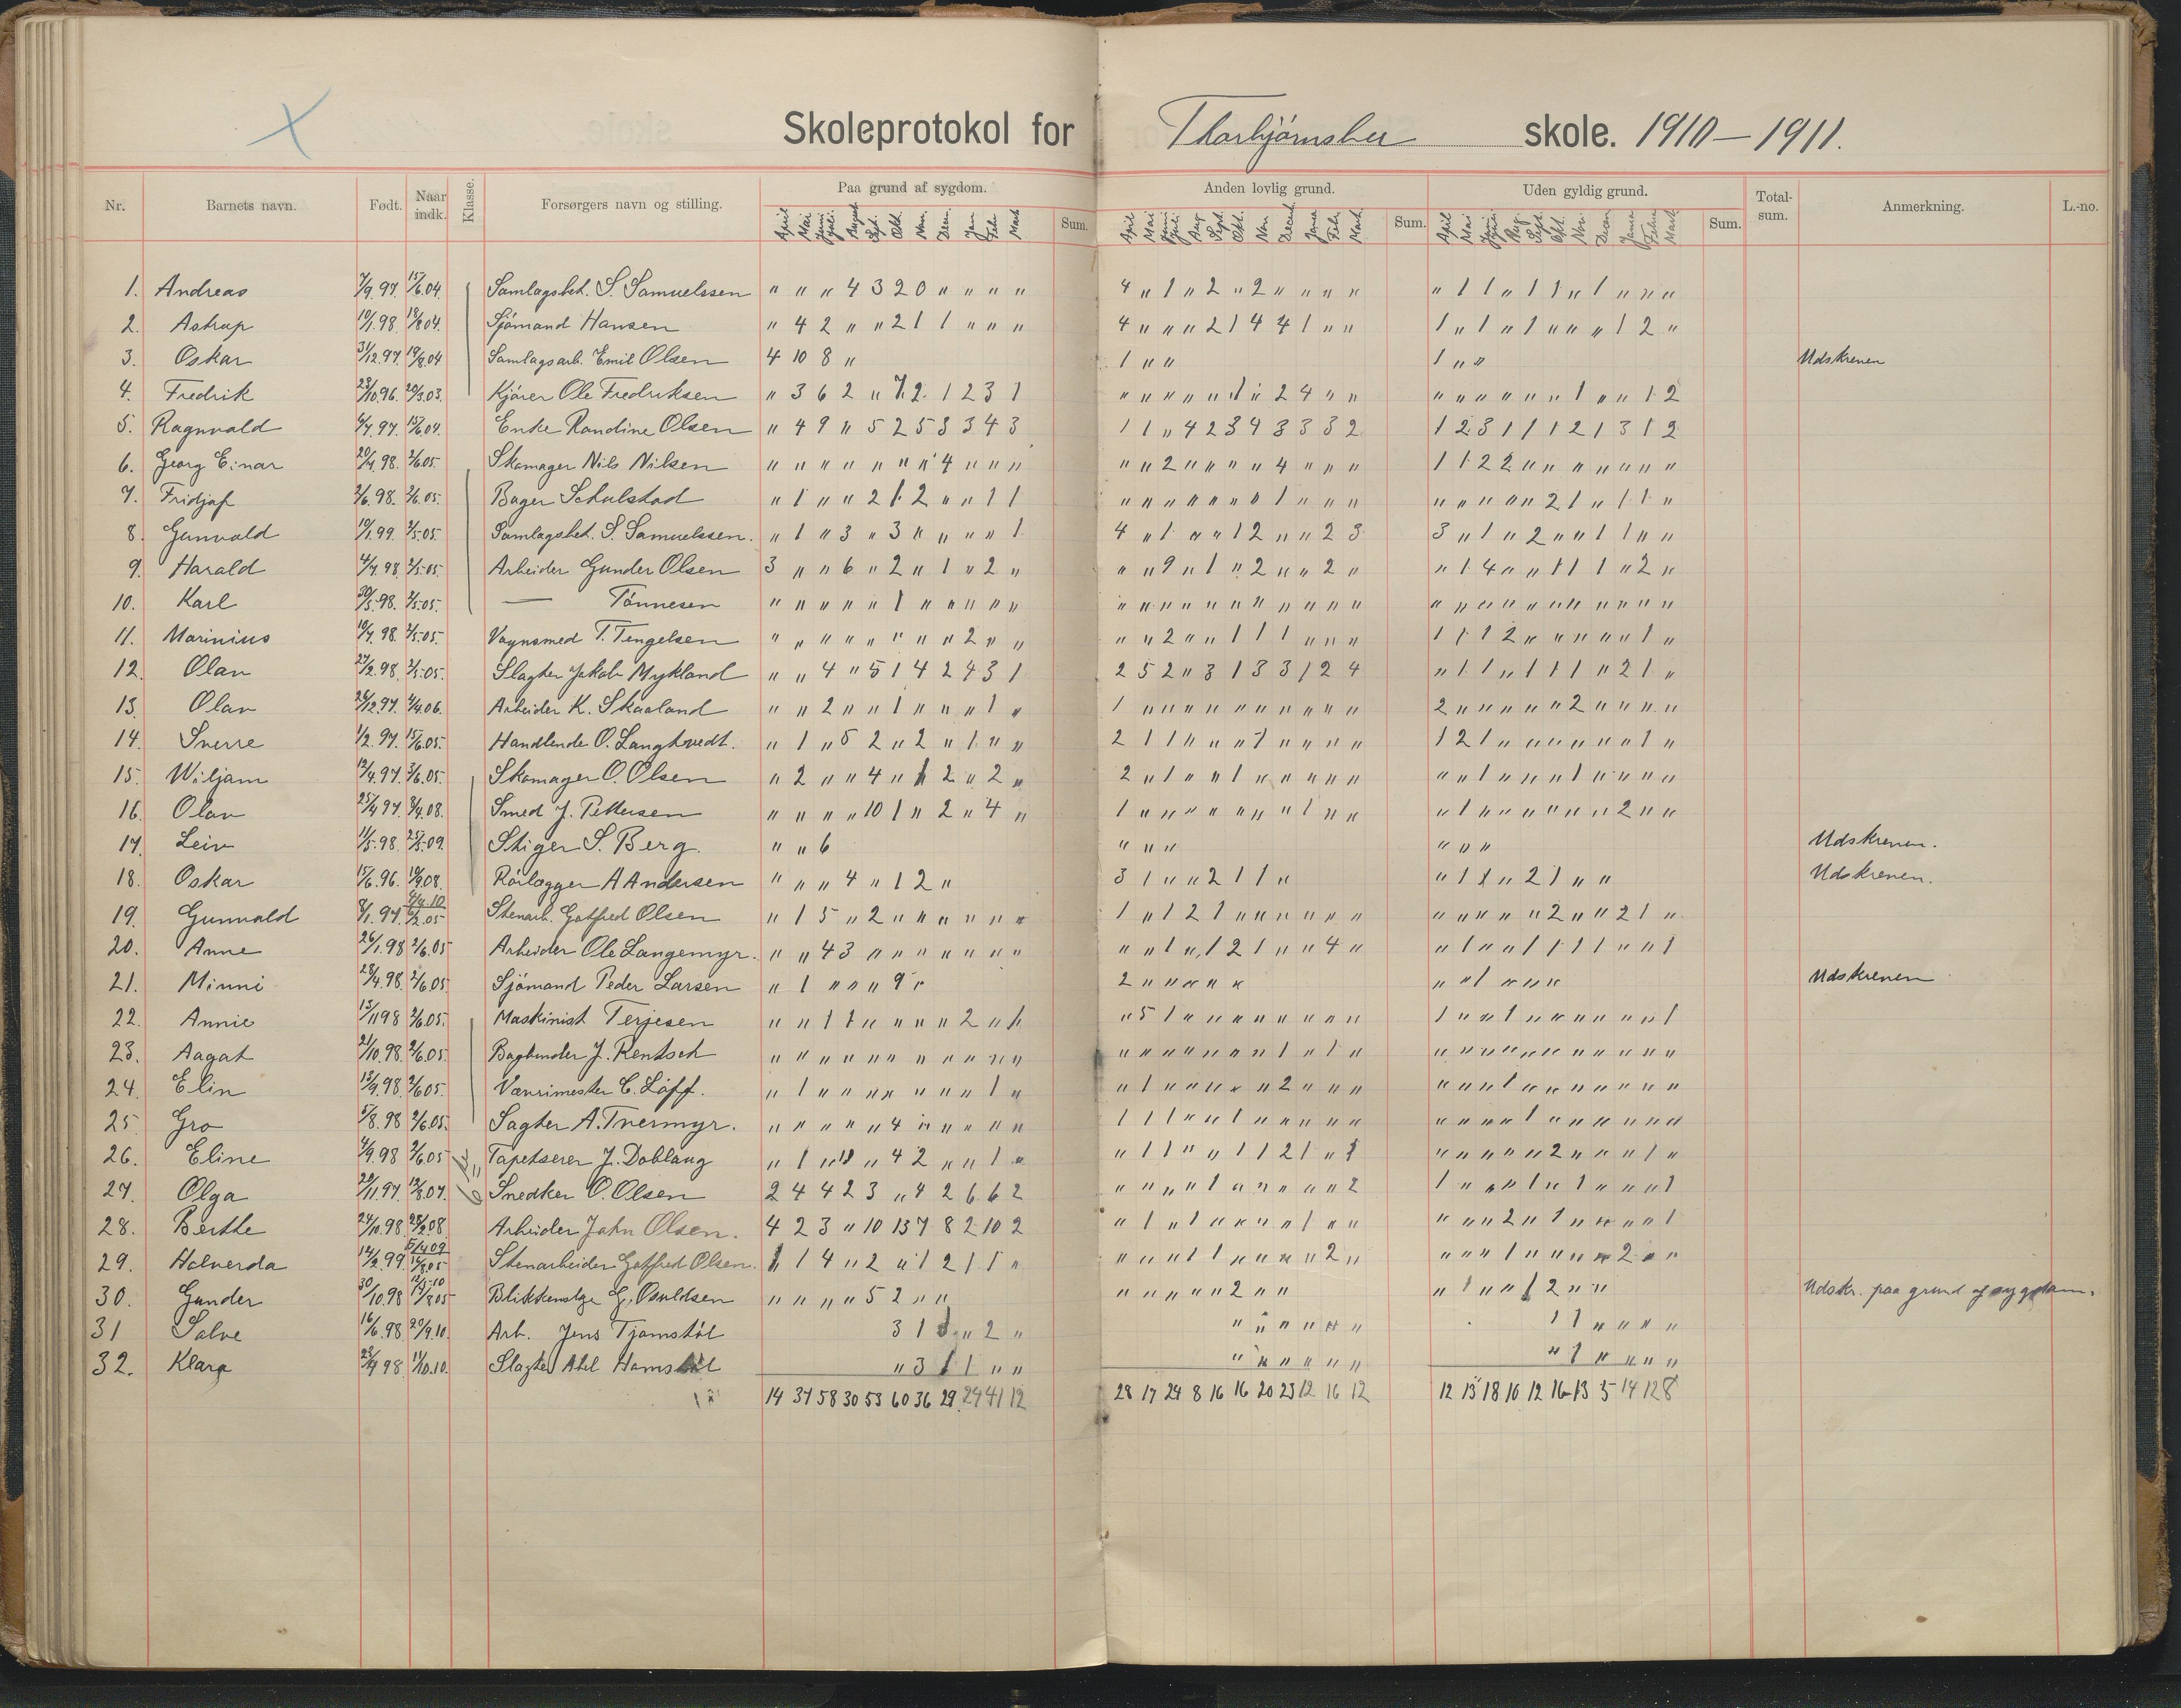 Skoleprotokol for Thorbjørnsbu skole. 1910-1911.
Nr. Barnets navn. Født. Naar indk. Klasse. Forsørgers navn og stilling. Paa grund af sygdom. Sum. Anden lovlig grund. Sum. Uden gyldig grund. Sum. Total-sum. Anmerkning. L.-no.
April Mai Juni Juli August Sept. Okt. Nov. Decm. Jan Feb Mars April Mai Juni Juli Aug Sept. Okt. Nov Decemb Janua Feb. Mars. April Mai Juni Juli Aug. Sept. Okt. Nov. Decem Janua Febru Mars
1. Andreas 7/9.97. 15/6.04. Samlagsbet. S. Samuelssen " " " 4 3 2 0 " " " " 4 " 1 " 2 " 2 " " " " " 1 1 " 1 1 " 1 " " "
2. Astrup 10/1.98. 18/8.04. Sjömand Hansen " 4 2 " " 2 1 1 " " " 4 " " " 2 1 4 4 1 " " 1 " 1 " 1 " " " 1 2 "
3. Oskar 31/12.97. 19/8.04 Samlagsarb. Emil Olsen 4 10 8 " 1 " " 1 " " Udskreven
4. Fredrik 23/10.96. 20/3.03. Kjörer Ole Fredriksen " 3 6 2 " 7. 2. 1 2 3 1 " " " " " 1 " 2 4 " " " " " " " " 1 " " 1 2
5. Ragnvald 6/7.97. 15/6.04. Enke Randine Olsen " 4 9 " 5 2 5 3 3 4 3 1 1 " 4 2 3 4 3 3 3 2 1 2 3 1 1 1 2 1 3 1 2
6. Georg Einar 20/4.98. 2/6.05. Skomager Nils Nilsen " " " " " " " 4 " " " " " 2 " " " " 4 " " " 1 1 2 2 " " " " " " "
7. Fridjof 2/6.98. 2/6.05. Bager Schulstad " 1 " " 2 1. 2 " " 1 1 " " " " " " " 1 " " " " " " " " 2 1 " 1 1 "
8. Gunvald 10/1.99. 2/5.05. Samlagsbet. S. Samuelssen. " 1 " 3 " 3 " " " " 1 4 " 1 " " 1 2 " " 2 3 3 " 1 " 2 " " 1 1 " "
9. Harald 4/7.98. 2/5.05. Arbeider Gunder Olsen 3 " " 6 " 2 " 1 " 2 " " " 9 " 1 " 2 " " 2 " " 1 4 " " 1 1 1 " 2 "
10. Karl 30/5.98. 2/5.05. — Tönnesen " " " " " 1 " " " " " " " " " " " " " " " " " " " " " " " " " " "
11. Marinius 10/7.98. 2/5.05. Vognsmed T. Tengelsen " " " " " " " " 2 " " " " 2 " " 1 1 1 " " " 1 1 1 2 " " " " " 1 "
12. Olav 27/2.98. 2/5.05. Slagter Jakob Mykland " " 4 " 5 1 4 2 4 3 1 2 5 2 " 3 1 3 3 1 2 4 " 1 1 " 1 1 1 " 2 1 "
13. Olav 26/12.97. 4/4.06. Arbeider K. Skaaland " " 2 " " 1 " " " 1 " 1 " " " " " " " " " " 2 " " " " " 2 " " " "
14. Sverre 1/2.97. 15/6.05. Handlende O. Langtvedt. " 1 " 5 2 " 2 " 1 " " 2 1 1 " " " 1 " " " " 1 2 1 " " " " " " 1 "
15. Wiljam 12/4.97. 3/6.05. Skomager O. Olsen " 2 " " 4 " 1 2 " 2 " 2 " 1 " " 1 " " " " " " " 1 " " " 1 " " " "
16. Olav 25/4.97. 8/4.08. Smed J. Pettersen " " " " 10 1 " 2 " 4 " 1 " " " " " " " 1 " " " 1 " " " " " " 2 " "
17. Leiv 11/5.98. 25/5.09. Stiger S. Berg. " " 6 " " " " " " Udskreven.
18. Oskar 15/6.96. 10/9.08. Rörlægger A Andersen " " " 4 " 1 2 " 3 1 " " 2 1 1 " " 1 1 " 2 1 " " Udskreven.
19. Gunvald 8/1.97. 2/2.05 Stenarb. Gotfred Olsen " 1 5 " 2 " " " " " " 1 " 1 2 1 " " " " " " " " " " " 2 " " 2 1 "
20. Anne 26/1.98 2/6.05 Arbeider Ole Langemyr. " " 4 3 " " " " " " " " " 1 " 1 2 1 " " 4 " " 1 " " 1 1 1 1 " " 1
21. Minni 28/4.98. 2/6.05. Sjömand Peder Larsen " 1 " " " 9 " 2 " " " " " " " 1 " " " Udskreven
22. Annie 13/1198 2/6.05. Maskinist Terjesen " " 1 1 " " " " 2 " 1 " 5 1 " " " " " " " " 1 " " 1 " " " " " " 1
23. Aagot 21/10.98. 2/6.05. Bagbinder J. Rentsch " " " " " " " " " " " " " " " " " " 1 " 1 " " " " " " " " " " " "
24. Elin 13/9.98. 2/605. Værvimester C. Löff. " 1 " " " " " " " 1 " " 1 " " " " " 2 " " " " " " 1 " " " " " " "
25. Gro 5/8.98 2/6.05. Sagter A. Tvermyr. " " " " " 4 " " " " " 1 1 1 " " 1 " " " " " " " " " 1 " " " " " "
26. Eline 4/9.98 2/6.05 Tapetserer J. Doblaug " 1 " 18 " 4 2 " " 1 " " 1 1 " " 1 1 2 1 " 1 " " " " " 2 " " " 1 "
27. Olga 20/11.97. 12/8.07. Snedker O. Olsen 2 4 4 2 3 " 4 2 6 6 2 " " " " 1 " " " " " 2 1 " " " 1 " 1 " " " 1
28. Berthe 24/10.98. 28/2.08. Arbeider John Olsen. 4 2 3 " 10 13 7 8 2 10 2 " 1 " 1 " " " " 1 " " " " " 2 " 1 " " " " 1
29. Halverda 14/2.99. Stenarbeider Gotfred Olsen. 1 1 4 " 2 " 1 2 1 1 " " " " 1 1 " " " " 2 " " " " 1 " " " " 2 " "
30. Gunder 30/10.98 Blikkenslager G. Osuldsen " " " " 5 2 " " " " " " " 2 " " " 1 " " 1 2 " " Udskr. paa grund af sygdom.
31 Salve 16/6.98. 20/9.10. Arb. Jens Tjamstöl 3 1 " 2 " " " " " " " 1 1 " " " "
32. Klara 23/9 98. 11/10.10. Slagter Abel " 3 1 1 " " " " " " " " " 1 " " " "
14 37 58 30 53 60 36 29 24 41 12 28 17 24 8 16 16 20 23 12 16 12 12 13 18 10 12 16 13 5 14 12 8